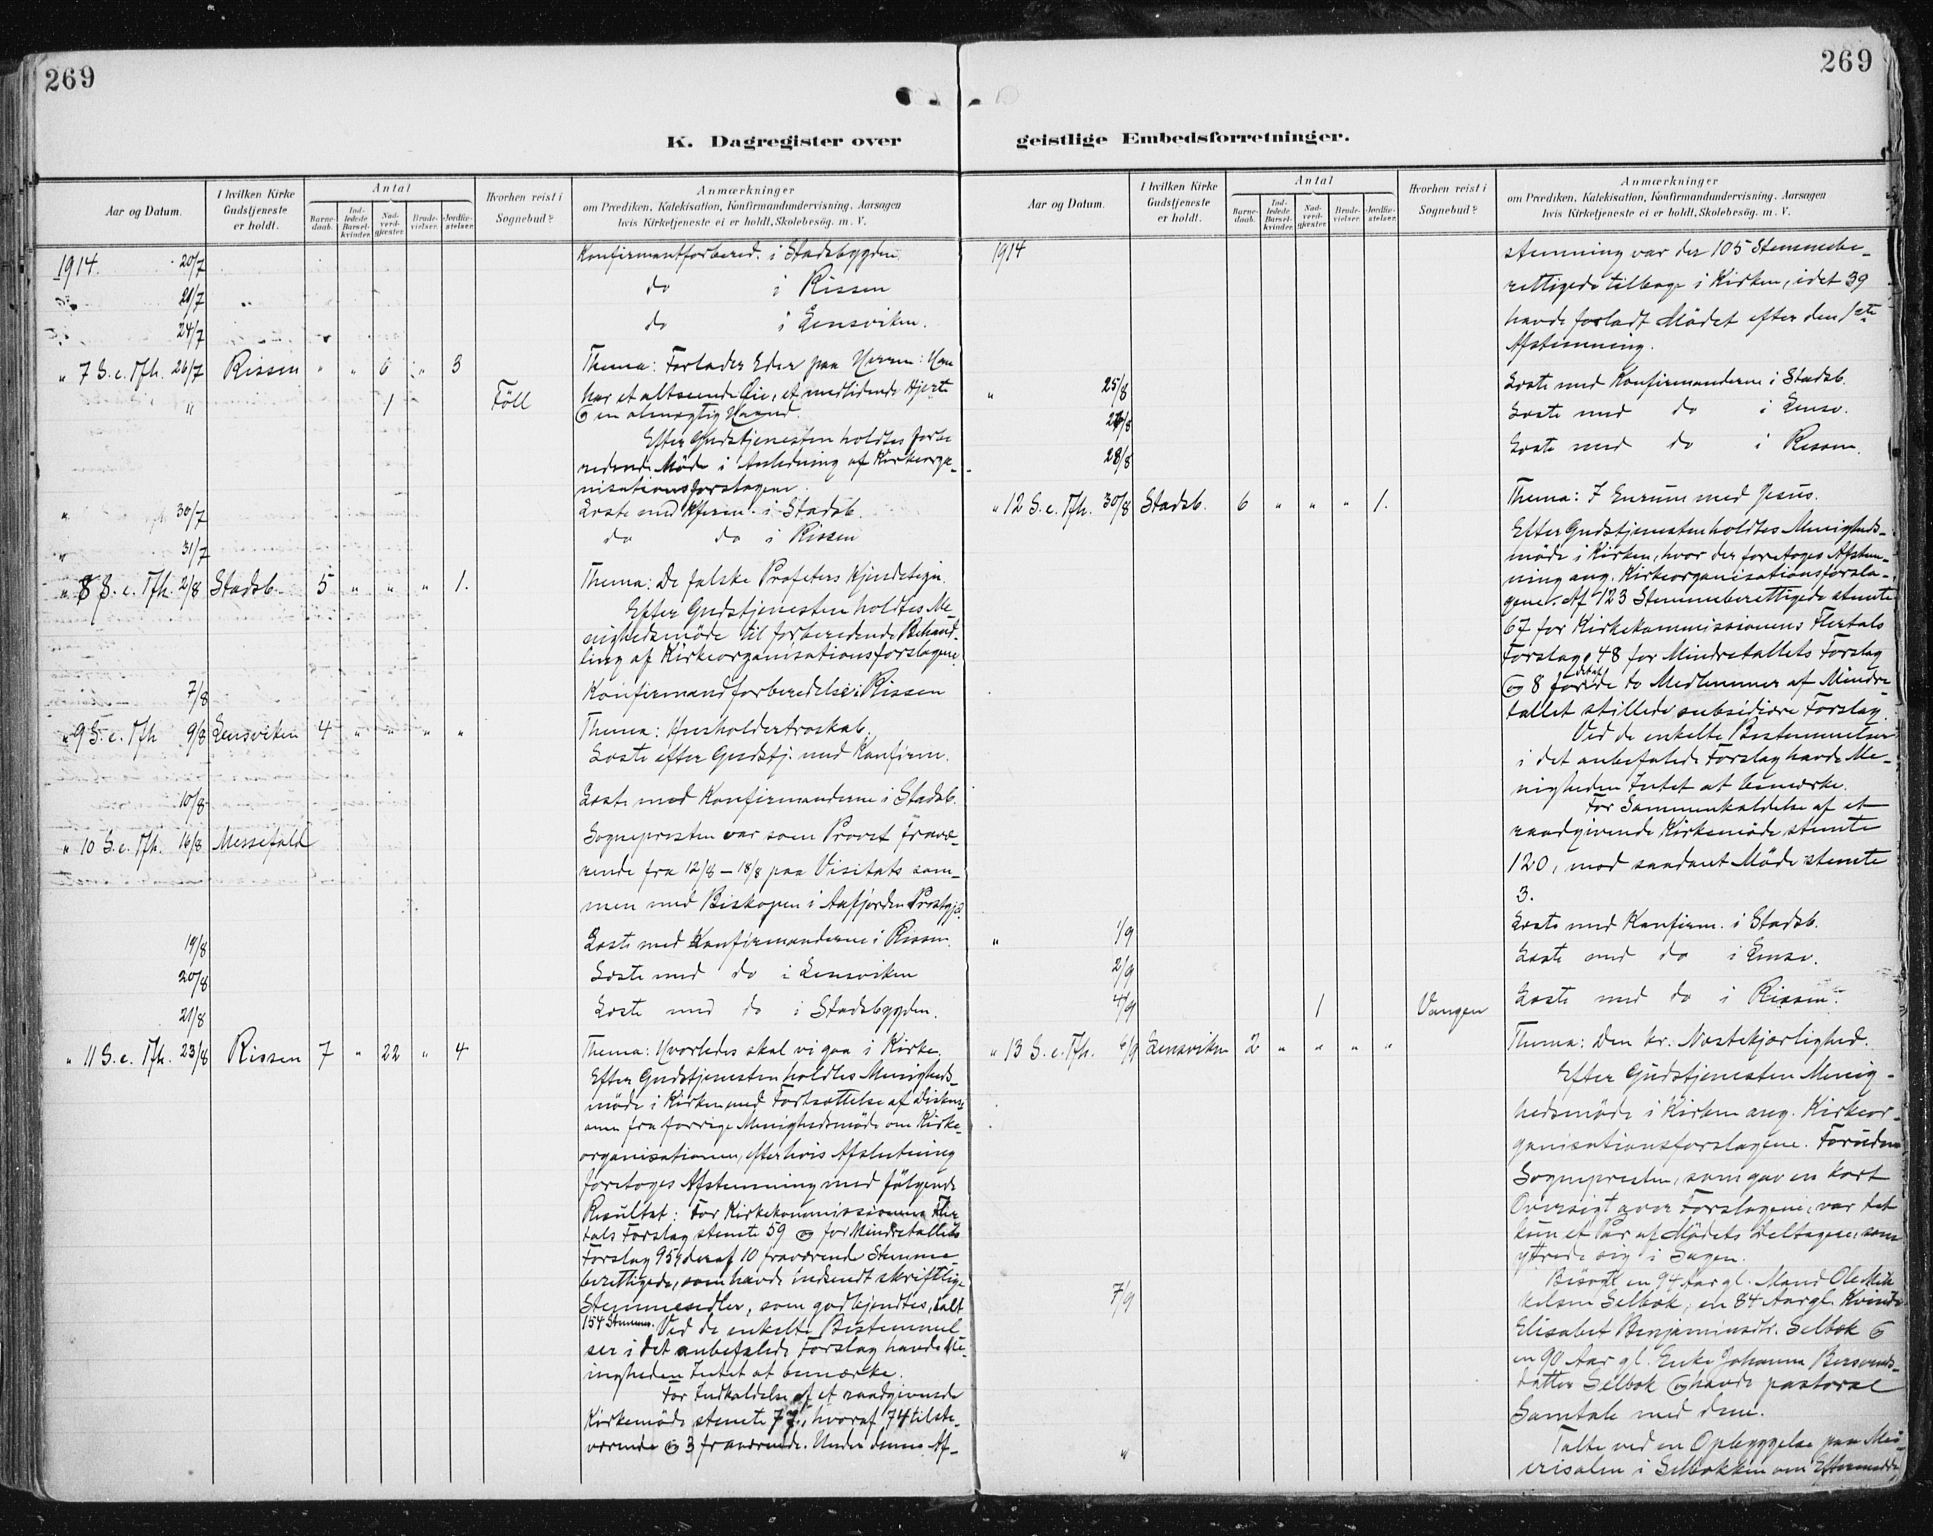 269
269
K. Dagregister over
geistlige Embedsforretninger.
Aar og Datum.
I hvilken Kirke Gudstjeneste er holdt.
Antal
Barnedaab.
Indledede Barselkvinder.
Nadverdgjester.
Brudevielser.
Jordfæstelser.
Hvorhen reist i Sognebud?
Anmærkninger
om Prædiken, Katekisation, Konfirmandundervisning, Aarsagen
hvis Kirketjeneste ei er holdt, Skolebesøg. m. V.
1914. 20/7 Konfirmantforbered. i Stadsbygden
21/7 " do i Rissen
24/7 do i Lensviken.
" 7 S. e. Tfh. 26/7 Rissen " " 6 " 3 Thema: Forlader Eder paa Herren: Han
" 1 Föll har et altseende Öie, et medlidende Hjerte
og en almægtig Haand.
Efter Gudstjenesten holdtes forbe
redende Möde i Anledning af Kirkeorga-
nisationsforslagene.
" 30/7 Læste med Kferm. i Stadsb.
" 31/7 do do i Rissen
" 8 S. e. Tfh. 2/8 Stadsb. 5 " " " 1. Thema: De falske Profeters Kjendetegn.
Efter Gudstjenesten holdtes Me-
nighedsmöde til forberedende Behand-
ling af Kirkeorganisationsforslagene.
7/8 Konfirmandforberedelse i Rissen
" 9 S. e. Tfh 9/8 Lensviken 4 " " " " Thema: Husholdertroskab.
Læste efter Gudstj. med Konfirm.
10/8 Læste med Konfirmanderne i Stadsb.
" 10 S. e. Tfh. 16/8 Messefald Sognepresten var som Provst fravæ-
rende fra 12/8 – 18/8 paa Visitats sam-
men med Biskopen i Aafjorden Prestgjd.
19/8 Læste med Konfirmanderne i Rissen.
20/8 Læste med do i Lensviken
21/8 Læste med do i Stadsbygden.
" 11 S. e. Tfh. 23/8 Rissen 7 " 22 " 4 Thema: Hvorledes skal vi gaa i Kirke.
Efter Gudstjenesten holdtes Menigheds-
möde i Kirken med Fortsættelse af Diskus
onen fra forrige Menighedsmöde om Kirke-
organisationen, efter hvis Afslutning
foretoges Afstemning med fölgende
Resultat: For Kirkekommissionens Fler
tals Forslag stemte 59 og for Mindretallets
Forslag 95, deraf 10 fraværende Stemme
berettigede, som havde indsendt skriftlige
Stemmesedler, som godkjendtes, ialt
154 Stemmer. Ved de enkelte Bestemmel-
ser i det anbefalede Forslag havde Me-
nigheden Intet at bemærke.
For Indkaldelse af et raadgivende
Kirkemöde stemte 77, hvoraf 74 tilste-
værende og 3 fraværende. Under denne Af-
Aar og Datum.
I hvilken Kirke Gudstjeneste er holdt.
Antal
Barnedaab.
Indledede Barselkvinder.
Nadverdgjester.
Brudevielser.
Jordfæstelser.
Hvorhen reist i Sognebud?
Anmærkninger
om Prædiken, Katekisation, Konfirmandundervisning, Aarsagen
hvis Kirketjeneste ei er holdt, Skolebesøg. m. V.
1914 stemning var der 105 Stemmebe-
rettigede tilbage i Kirken, idet 39
havde forladt Mödet efter den 1ste
Afstemning.
" 25/8 Læste med Konfirmanderne i Stadsb.
26/8 Læste med do i Lensv.
28/8 Læste med do i Rissen.
" 12 S. e. Tfh. 30/8 Stadsb. 6 " " " 1. Thema: I Enrum med Jesus.
Efter Gudstjenesten holdtes Menigheds-
möde i Kirken, hvor der foretoges Afstem-
ning ang. Kirkeorganisationsforsla-
gene. Af 123 Stemmeberettigede stemte
67 for Kirkekommissionens Flertals
Forslag, 48 for Mindretallets Forslag
og 8 for det af de to Medlemmer af Mindre-
tallet stillede subsidiære Forslag.
Ved de enkelte Bestemmelser
i det anbefalede Forslag havde Me-
nigheden Intet at bemærke.
For Sammenkaldelse af et
raadgivende Kirkemöde stemte
120, mod saadant Möde stemte
3.
" 1/9 Læste med Konfirm. i Stadsb.
2/9 Læste med do i Lensv.
4/9 1 Vangen Læste med do i Rissen.
" 13 S. e. Tfh. 6/9 Lensviken 2 " " " " Thema: Den kr. Næstekjærlighed.
Efter Gudstjenesten Menig-
hedsmöde i Kirken ang. Kirkeor-
ganisationsforslagene. Foruden
Sognepresten, som gav en kort
Oversigt over Forslagene, var det
kun et Par af Mödets Deltagere, som
yttrede sig i Sagen.
7/9 Besögt en 94 Aar gl. Mand Ole Mik
kelsen Selbæk, en 84 Aar gl. Kvinde
Elisabet Benjaminsdtr. Selbæk og
en 90 Aar gl. Enke Johanna Bersvends-
datter Selbæk og havde pastoral
Samtale med dem.
" Talte ved en Opbyggelse paa Mei-
erisalen i Selbækken om Eftermidda